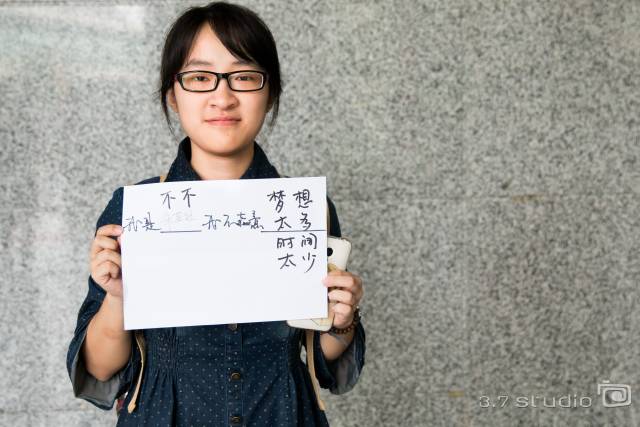 不不 梦想
我是 我不愿意 太多
时间
太少
3.7 studio